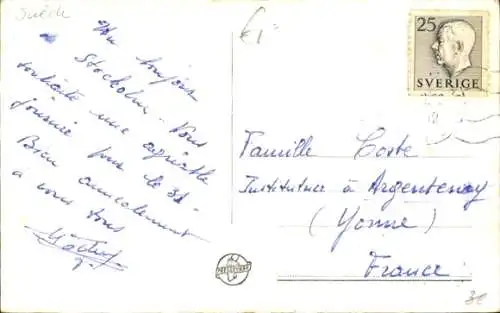 Suède
€1=
25
SVERIGE
Stockholm. Vous
souhaite une agréable
journée pour le 31-
Bien amicalement
à vous tous
Famille Coste
Institutrice à Argentenay
(Yonne)
France
3€